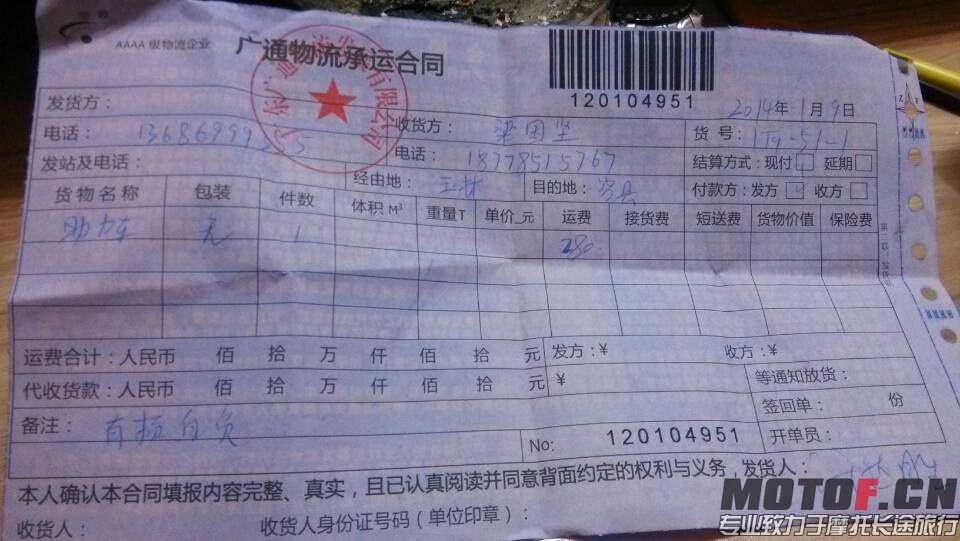 AAAA 级物流企业
广通物流承运合同
120104951
2014年1月9日
发货方：
收货方：
货号：
电话：
电话：18778515767
结算方式：现付 延期
发站及电话：
经由地：玉林
目的地：容县
付款方：发方 收方
货物名称 包装 件数 体积M³ 重量T 单价_元 运费 接货费 短送费 货物价值 保险费
助力车 无 1 280
运费合计：人民币 佰 拾 万 仟 佰 拾 元 发方：¥ 收方：¥
代收货款：人民币 佰 拾 万 仟 佰 拾 元 ¥
等通知放货：
签回单： 份
备注：有损自负
No: 120104951
开单员：
本人确认本合同填报内容完整、真实，且已认真阅读并同意背面约定的权利与义务，发货人：
收货人： 收货人身份证号码（单位印章）：
MOTOF.CN
专业致力于摩托长途旅行